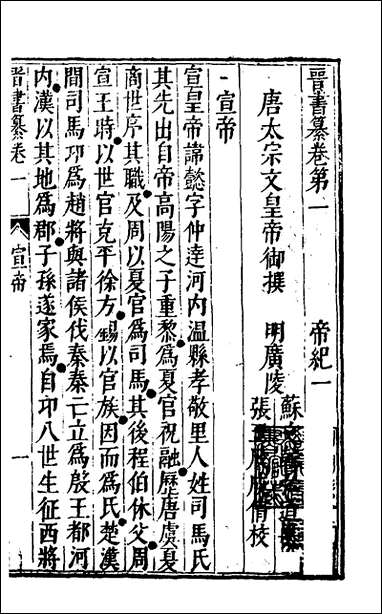 晉書纂卷第一 帝紀一
唐太宗文皇帝御撰 明廣陵
蘇
張 倩校
宣帝
宣皇帝諱懿字仲達河内溫縣孝敬里人姓司馬氏
其先出自帝高陽之子重黎爲夏官祝融歷唐虞夏
商世序其職及周以夏官爲司馬其後程伯休父周
宣王時以世官克平徐方錫以官族因而爲氏楚漢
間司馬卬爲趙將與諸侯伐秦秦亡立爲殷王都河
内漢以其地爲郡子孫遂家焉自卬八世生征西將
晉書纂卷一 宣帝 一